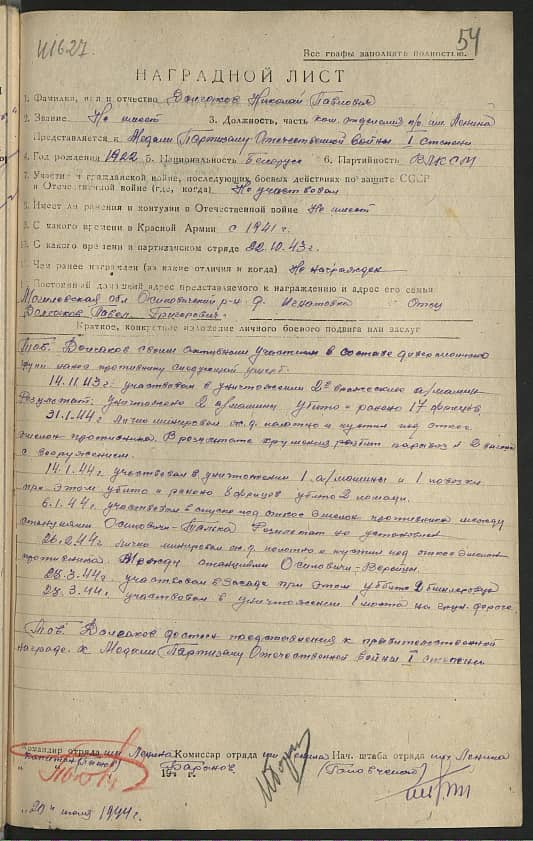 Ш1627.
54
Все графы заполнять полностью.
НАГРАДНОЙ ЛИСТ
1. Фамилия, имя и отчество Николай Павлович
2. Звание Не имеет 3. Должность, часть ком. отделения п/о им. Ленина
Представляется к Медали „Партизану Отечественной Войны I степени
4. Год рождения 1922 5. Национальность Белорус 6. Партийность ВЛКСМ
7. Участие в гражданской войне, последующих боевых действиях по защите СССР
и Отечественной войне (где, когда) Не участвовал
8. Имеет ли ранения и контузии в Отечественной войне Не имеет
9. С какого времени в Красной Армии с 1941 г.
10. С какого времени в партизанском отряде 22.10.43 г.
11. Чем ранее награжден (за какие отличия и когда) Не награжден
Постоянный домашний адрес представляемого к награждению и адрес его семьи
Могилевская обл Осиповичский р-н д. Игнатовка Отец
Павел Григорьевич
Краткое, конкретное изложение личного боевого подвига или заслуг
Тов. своим активным участием в составе диверсионной
групп нанес противнику следующий ущерб.
14.11.43 г. участвовал в уничтожении 2х вражеских а/машин
Результат: уничтожено 2 а/машины убито и ранено 17 фрицев,
31.1.44 г. Лично минировал ж.д. полотно и пустил под откос
эшелон противника. В результате крушения разбит паровоз и 2 вагона
с вооружением.
14.1.44 г. участвовал в уничтожении 1 а/машины и 1 повозки
при этом убито и ранено фрицев убито 2 лошади.
6.1.44 г. участвовал в спуске под откос эшелон противника между
станциями Осиповичи - Результат не установлен
26.2.44 г. лично минировал ж.д. полотно и пустил под откос эшелон
противника. Между станциями Осиповичи - Верейцы.
23.3.44 г. участвовал в засаде при этом убито 2
28.3.44 г. участвовал в уничтожении 1 моста на дороге.
Тов. достоин представления к правительственной
награде к Медали „Партизану Отечественной войны I степени
Командир отряда им. Ленина Комиссар отряда им. Ленина Нач. штаба отряда им. Ленина
капитан 194 г.
„20" июля 1944 г.